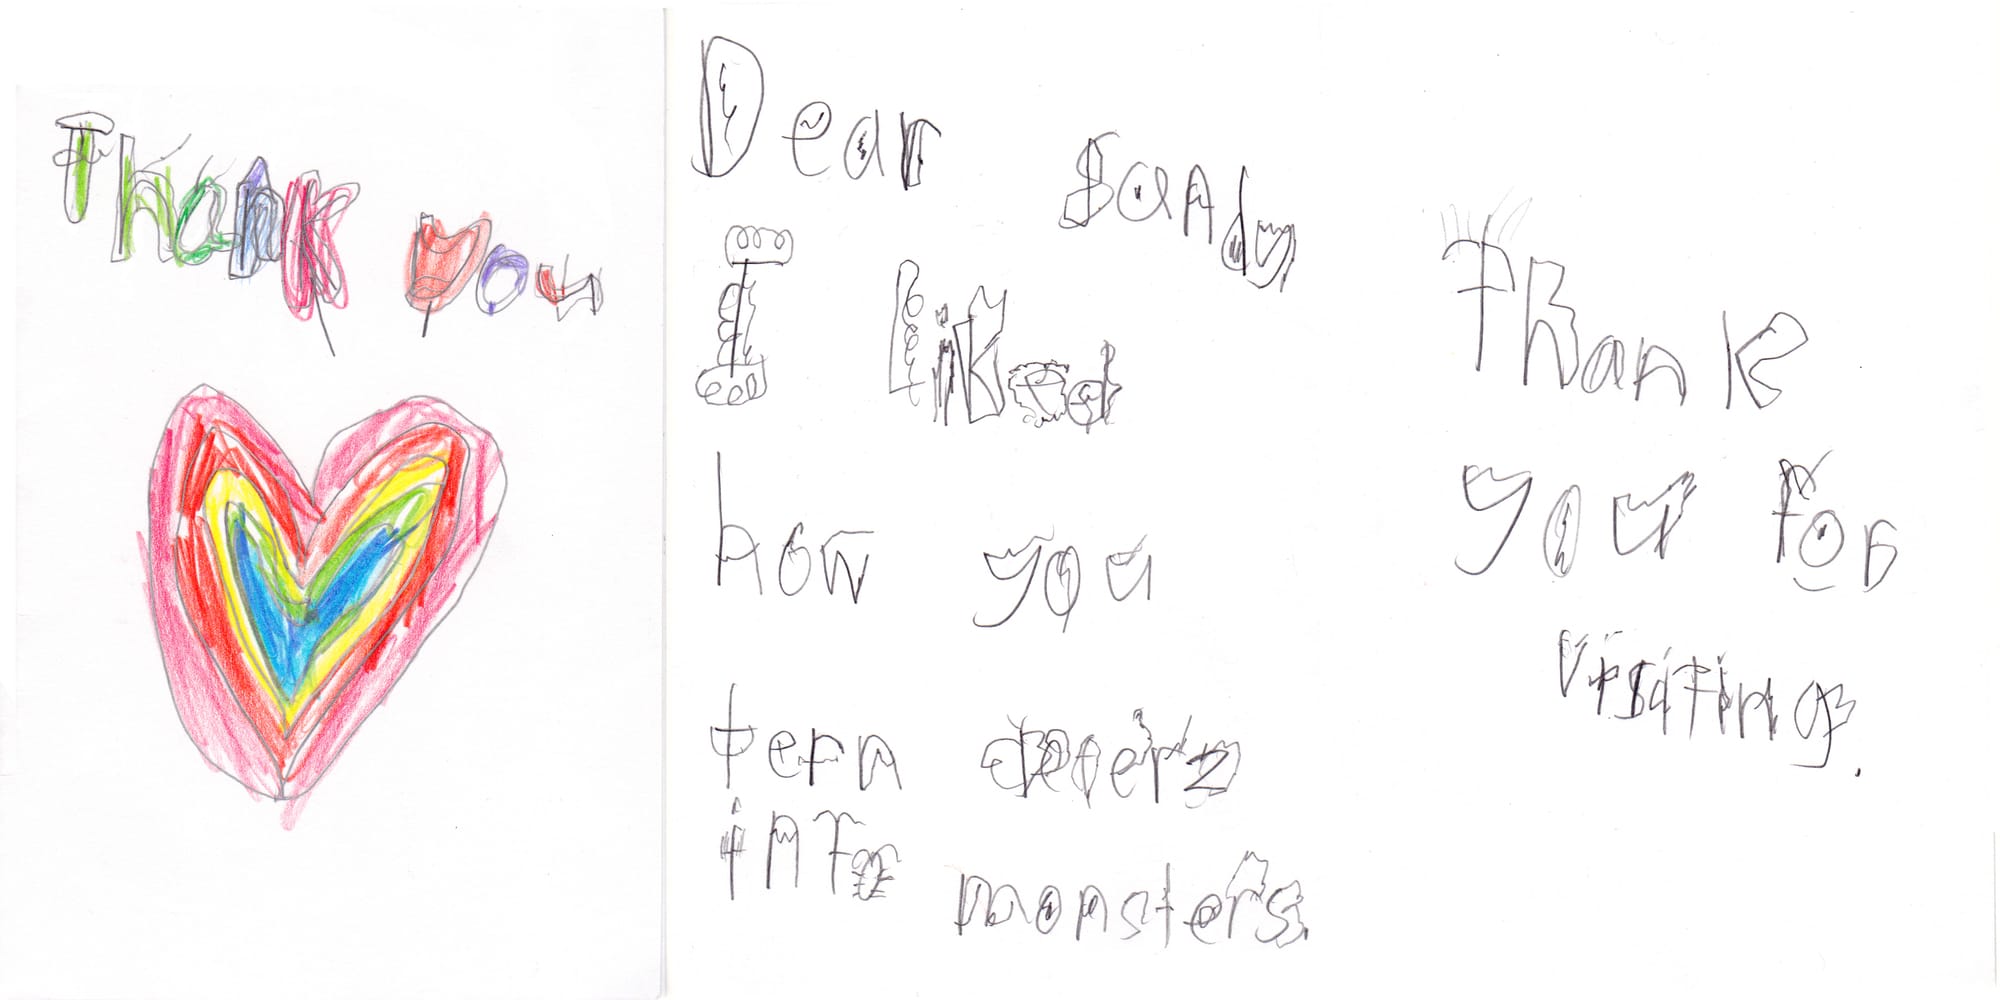 Thank you
Dear Sandy
I liked
how you
tern
into monsters.
Thank
you for
visiting.